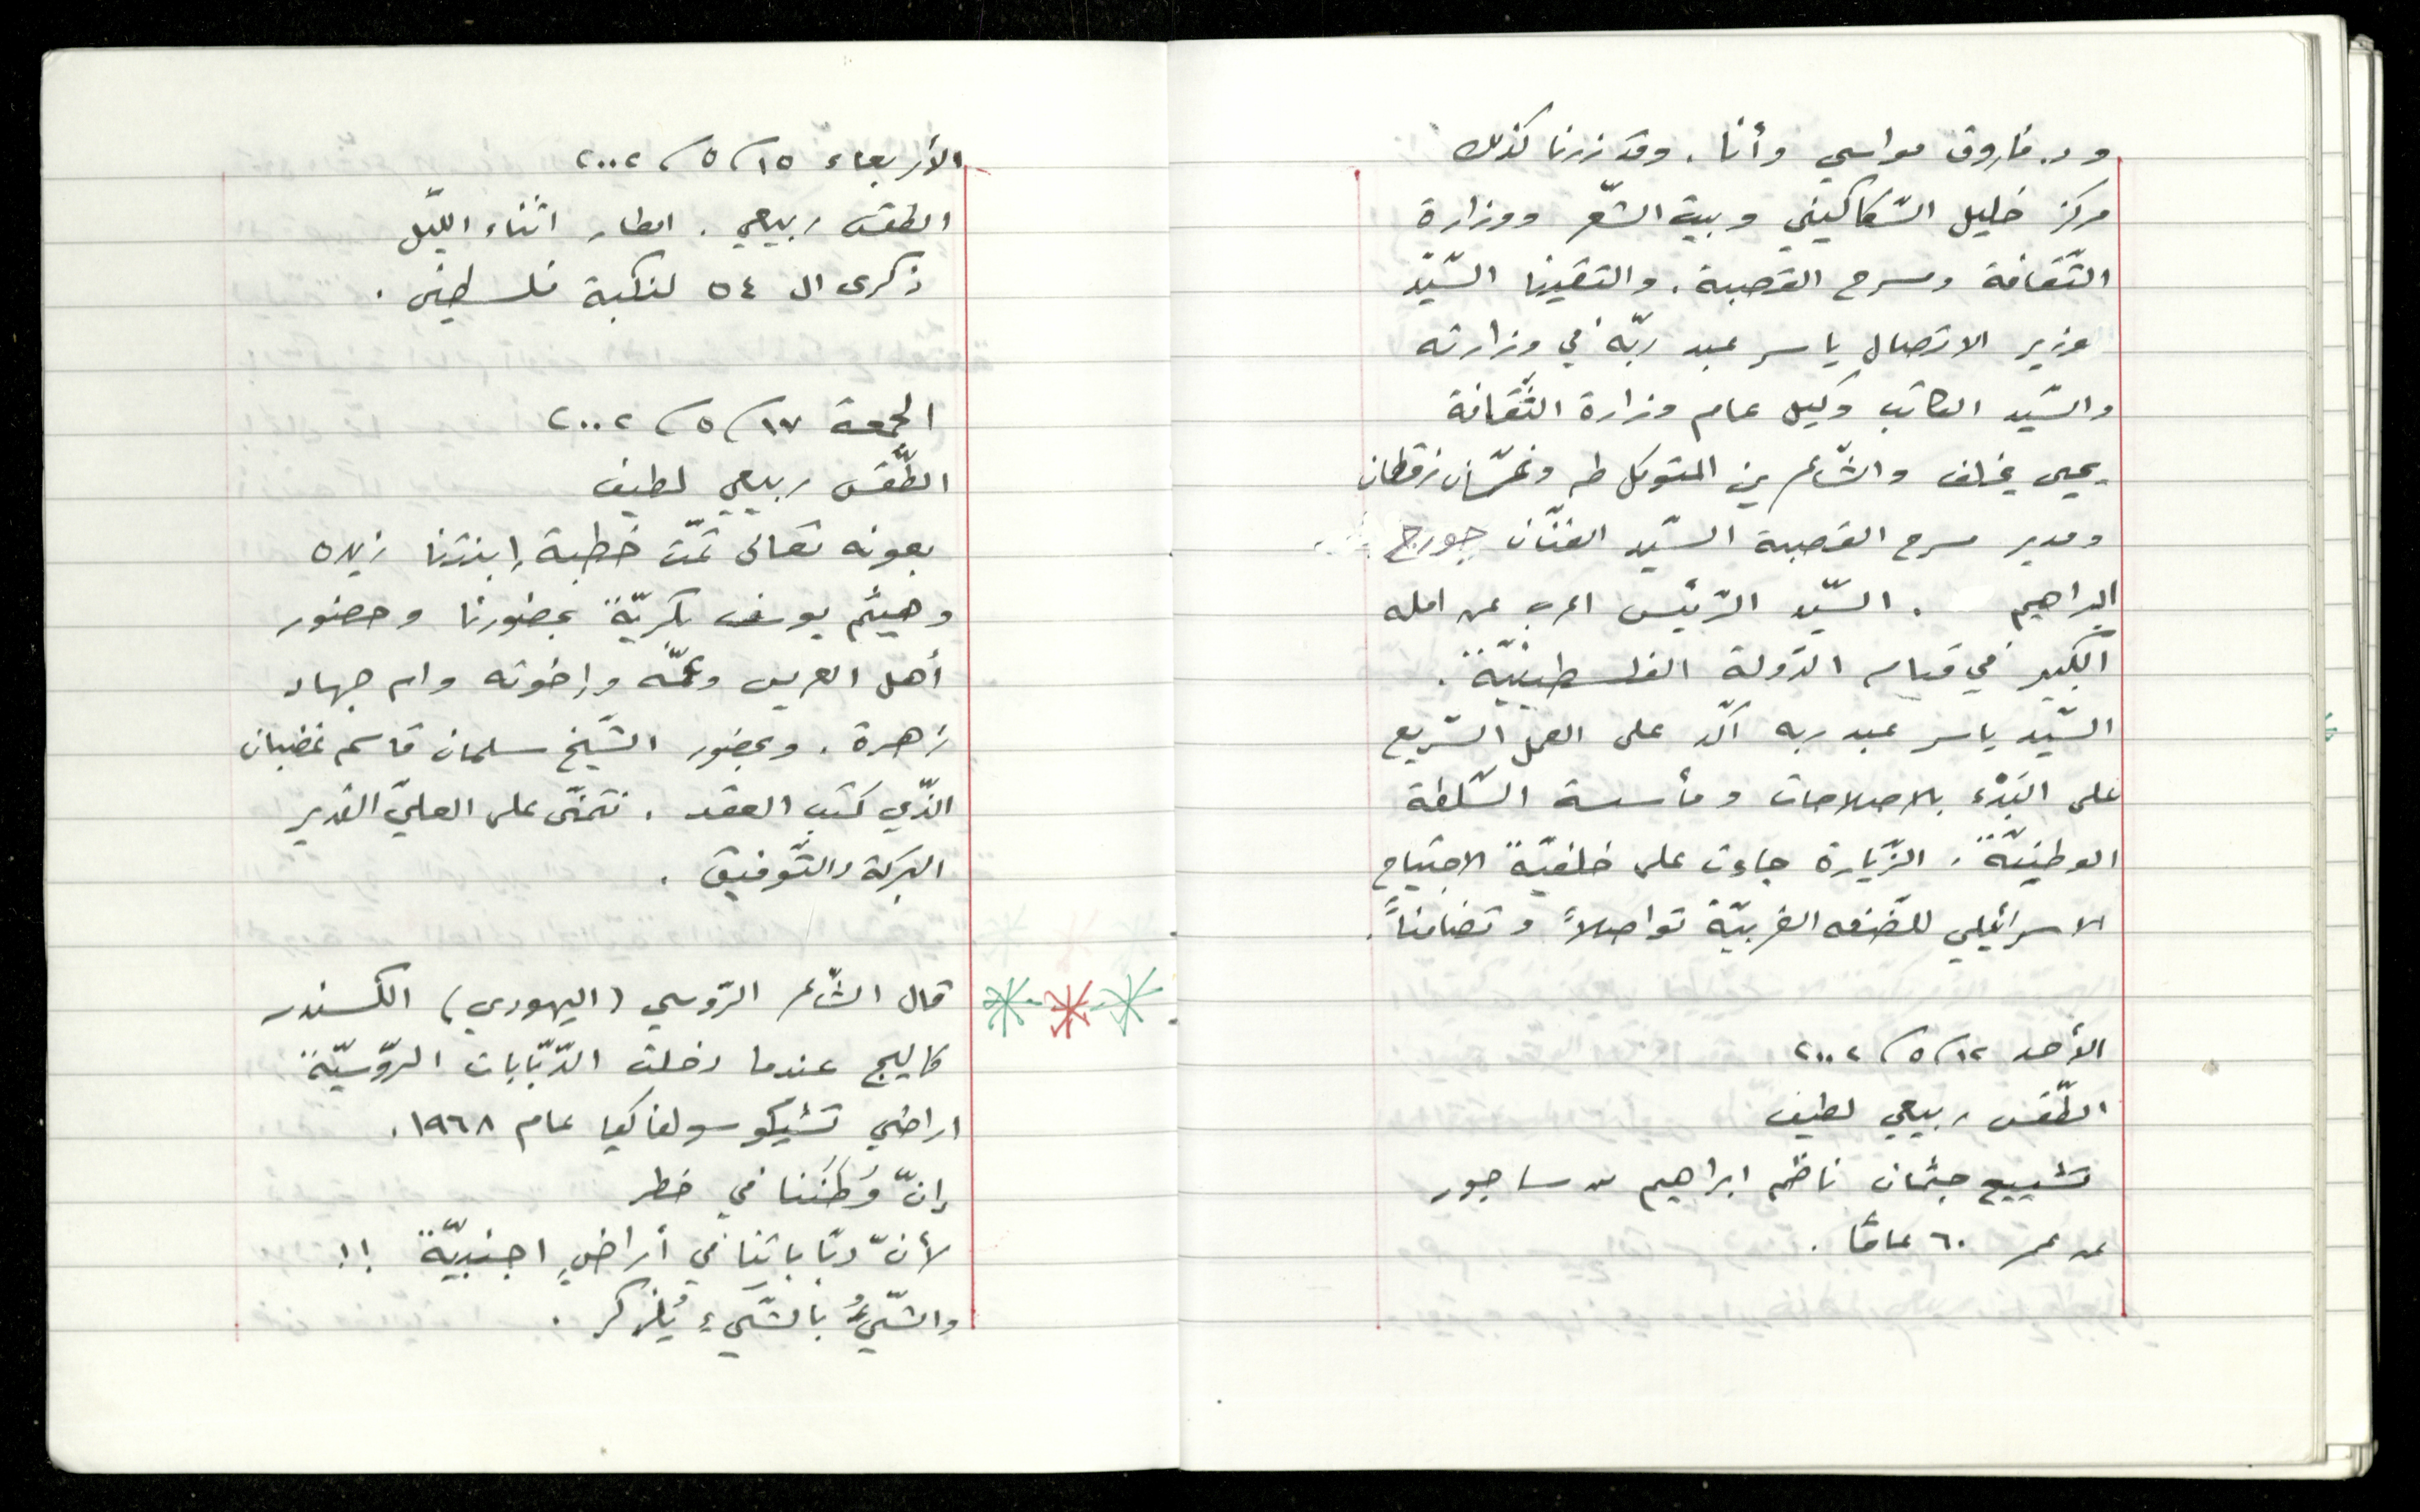 و د. فاروق مواسي وأنا. وقد زرنا كذلك
مركز خليل السّكاكيني وبيت الشّعر ووزارة
الثّقافة ومسرح القصبة. والتقينا السّيّد
وزير الاتصال ياسر عبد ربّه في وزارته
والسّيد الكاتب وكيل عام وزارة الثّقافة
يحيى يخلف والشّاعرين المتوكل طه وغسّان زقطان
ومدير مسرح القصبة السّيد الفنّان جورج
ابراهيم . السّيّد الرّئيس اعرب عن امله
الكبير في قيام الدّولة الفلسطينيّة.
السّيّد ياسر عبد ربه اكّد على العمل السّريع
على البَدْء بالاصلاحات ومأسسة السّلطة
الوطنيّة. الزّيارة جاءت على خلفيّة الاجتياح
الاسرائيلي للضّفه الغربيّة تواصلاً وتضامناً.
الأحد ١٢/ ٥/ ٢٠٠٢
الطّقس ربيعي لطيف
تشييع جثمان ناظم ابراهيم من ساجور
عن عمر ٦٠ عامًا .
الأربعاء ١٥/ ٥/ ٢٠٠٢
الطقس ربيعي . امطار اثناء الليّل
ذكرى ال ٥٤ لنكبة فلسطين .
الجمعة ١٧/ ٥/ ٢٠٠٢
الطّقس ربيعي لطيف
بعونه تعالى تمّت خطبة إبنتنا
وهيثم يوسف بكريّة بحضورنا وحضور
أهل العريس وعمّه وإخوته وام جهاد
زهرة . وبحضور الشّيخ سلمان قاسم غضبان
الذّي كتب العقد . نتمنّى على العليّ القدير
البركة والتّوفيق .
قال الشّاعر الرّوسي (اليهودي) الكسندر
كاليج عندما دخلت الدّبّابات الرّوسيّة
اراضي تشيكوسولفاكيا عام ١٩٦٨.
إنّ وَطَنَنا في خطر
لأنّ دبّاباتِنا في أراضٍ اجنبيّة !!
والشّيءُ بالشّيءِ يُذكر .